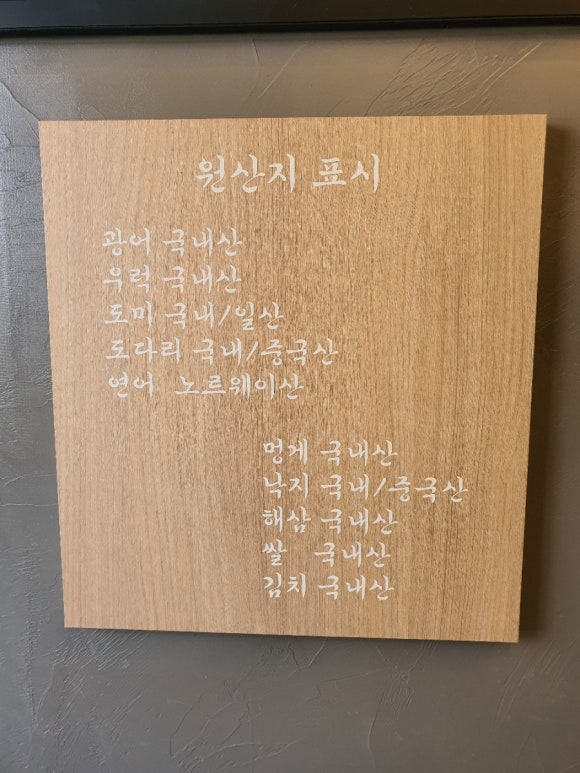 원산지 표시
광어 국내산
우럭 국내산
도미 국내/일산
도다리 국내/중국산
연어 노르웨이산
멍게 국내산
낙지 국내/중국산
해삼 국내산
쌀 국내산
김치 국내산